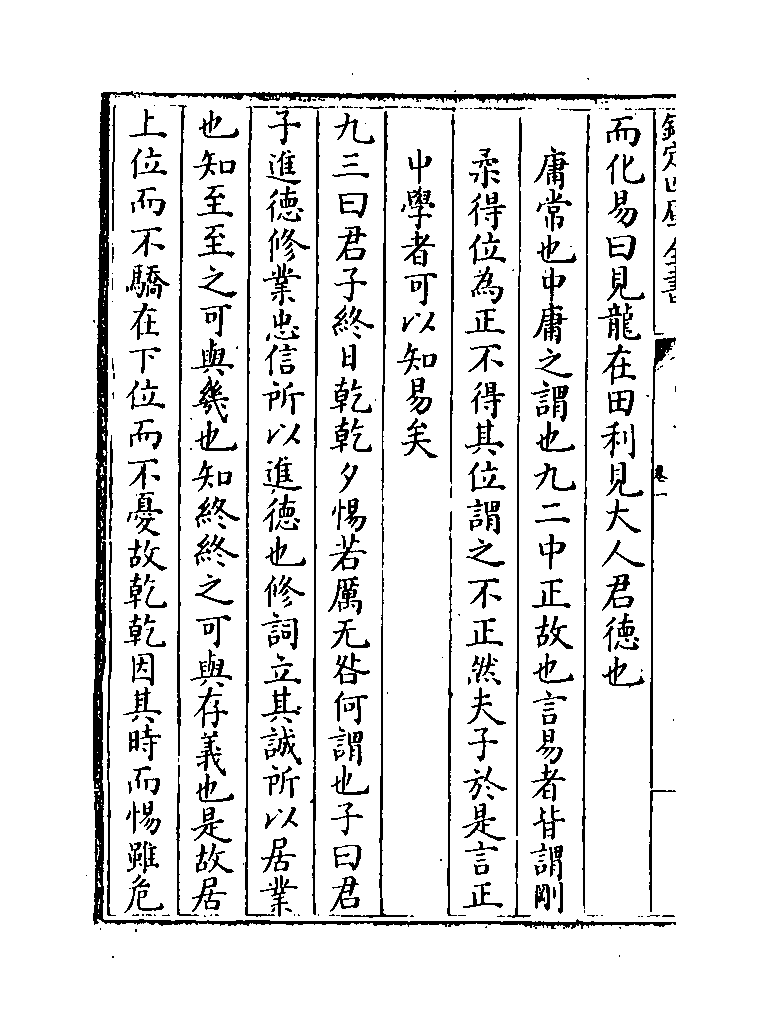 欽定四庫全書
卷一
而化易曰見龍在田利見大人君徳也
庸常也中庸之謂也九二中正故也言易者皆謂剛
柔得位為正不得其位謂之不正然夫子於是言正
中學者可以知易矣
九三曰君子終日乾乾夕惕若厲无咎何謂也子曰君
子進徳修業忠信所以進徳也修詞立其誠所以居業
也知至至之可與幾也知終終之可與存義也是故居
上位而不驕在下位而不憂故乾乾因其時而惕雖危